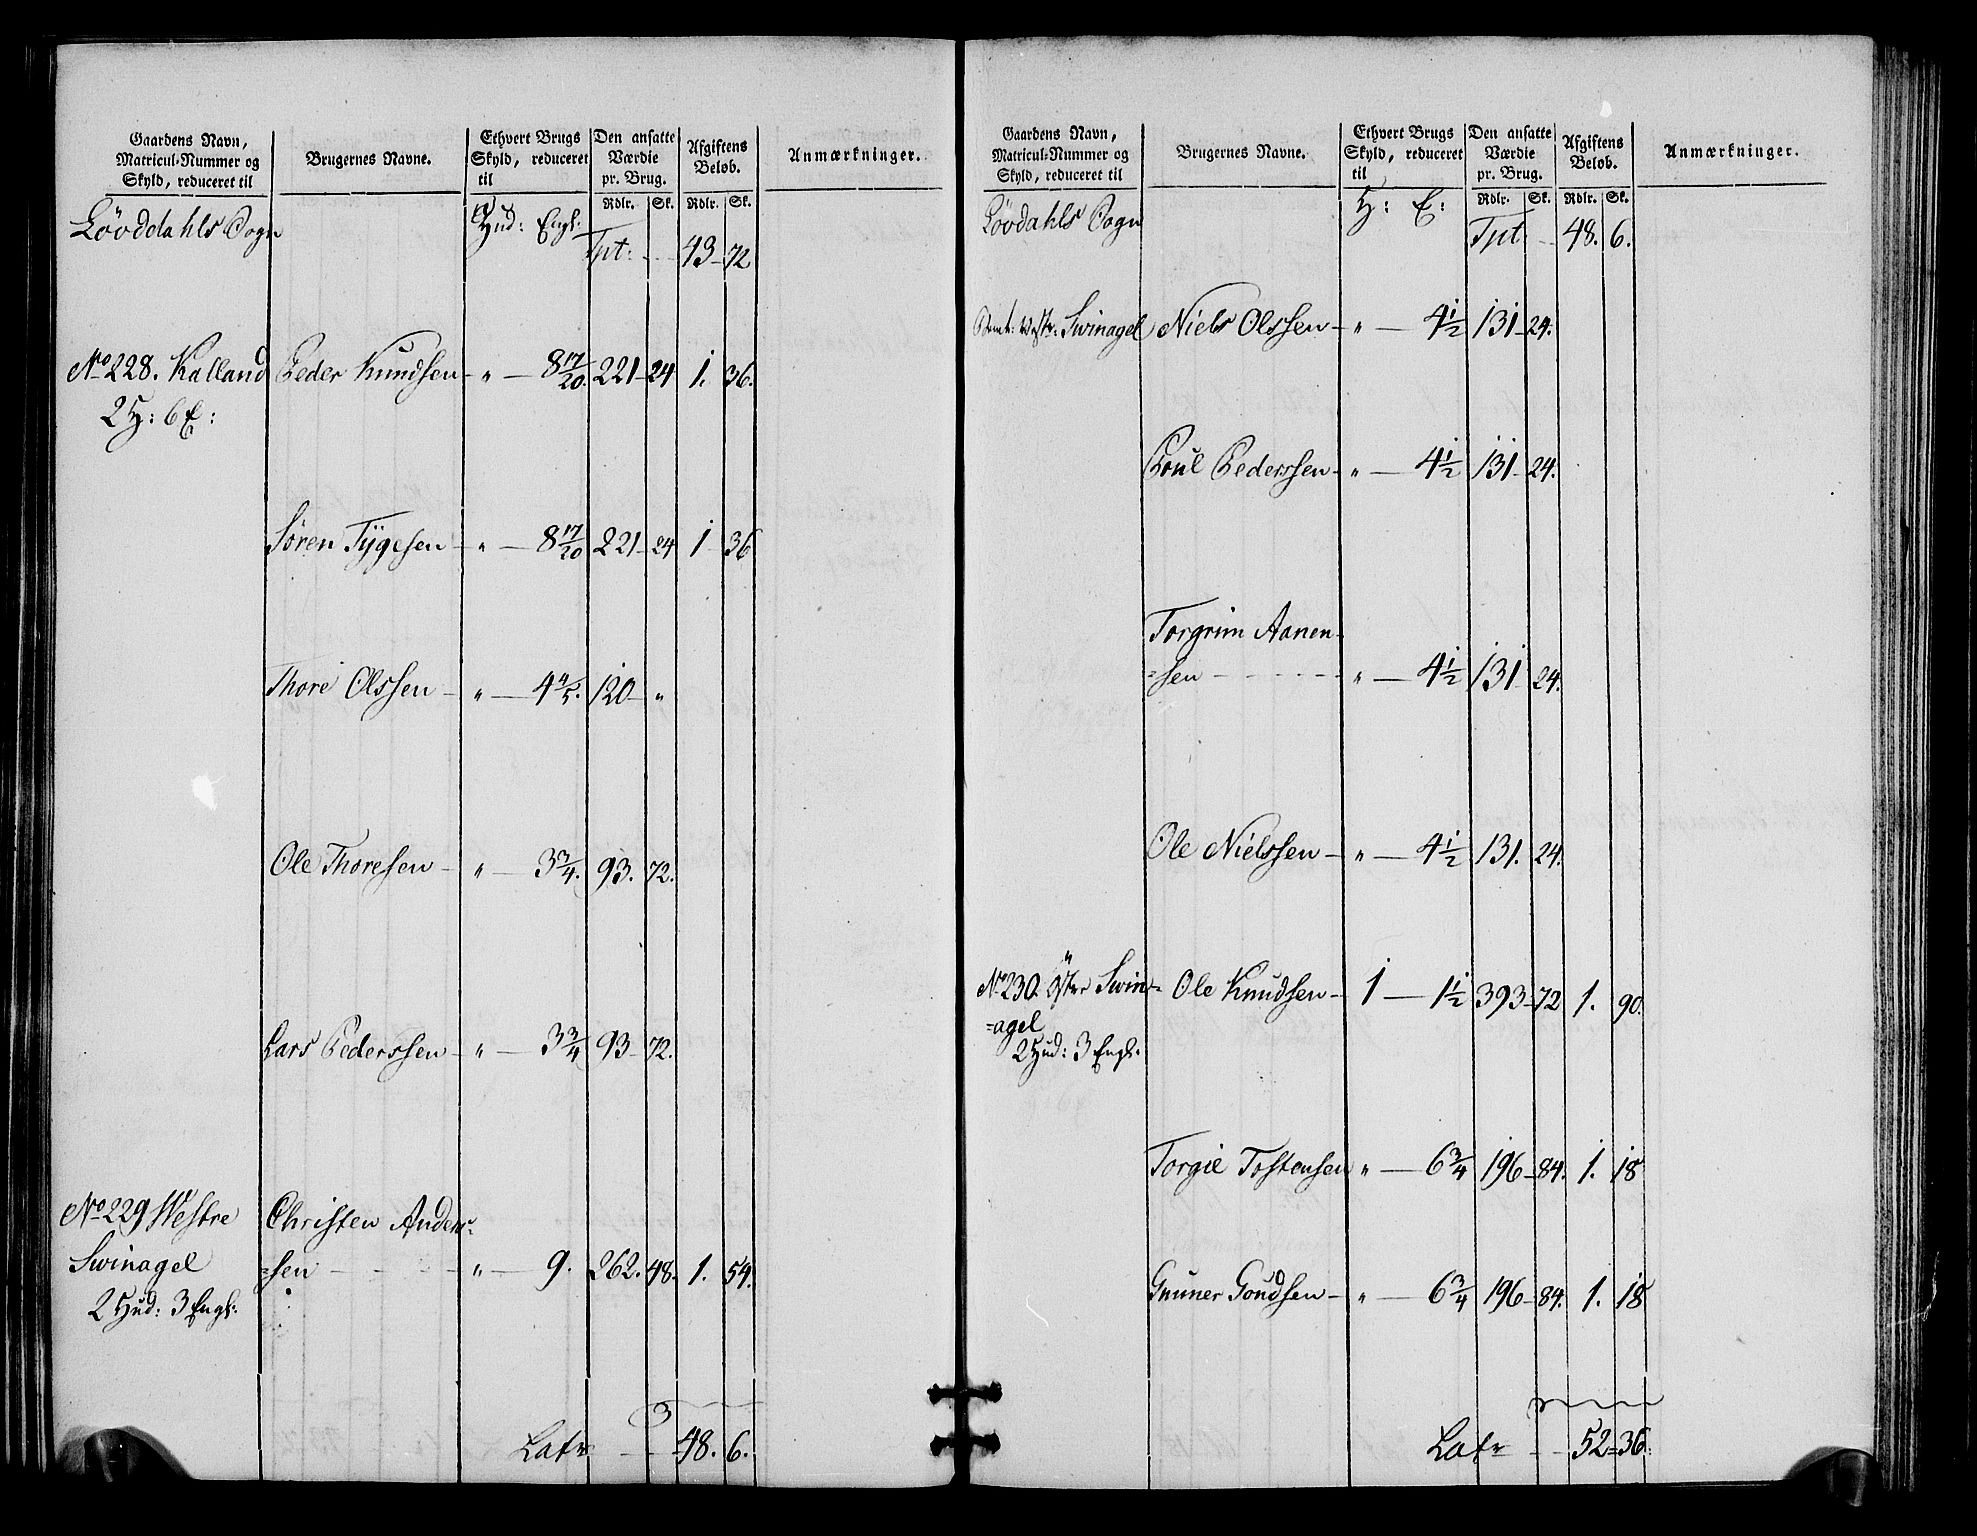 Gaardens Navn, Matricul-Nummer og Skyld, reduceret til | Brugernes Navne. | Ethvert Brugs Skyld, reduceret til | Den ansatte Værdie pr. Brug. | Afgiftens Beløb. | Anmærkninger.
Rdlr. Sk. Rdlr. Sk.
Lövddahls Sogn Hud: Engl:
Tpt: 43 72
No 228. Kalland Peder Knudsen " 8 17/20 221 24 1. 36.
2 H: 6 E:
Søren Tÿgesen " 8 17/20 221 24 1 36
Thore Olssen " 4 4/5. 120 "
Ole Thoresen " 3 3/4. 93. 72.
Lars Pederssen " 3 3/4 93 72.
No 229 Westre Christen Anders-
Swinagel =sen " 9. 262. 48. 1. 54.
2 Hud: 3 Engl:
Latr 48. 6.
Gaardens Navn, Matricul-Nummer og Skyld, reduceret til | Brugernes Navne. | Ethvert Brugs Skyld, reduceret til | Den ansatte Værdie pr. Brug. | Afgiftens Beløb. | Anmærkninger.
Rdlr. Sk. Rdlr. Sk.
Lövdahls Sogn H: E:
Tpt 48. 6.
Swinagel Niels Olssen " 4 1/2 131 24.
Poul Pederssen " 4 1/2 131 24.
Torgrim Aanen-
=sen " 4 1/2 131 24.
Ole Nielssen " 4 1/2 131. 24.
No 230. Öster Swin= Ole Knudsen 1 1 1/2 393 72 1. 90.
=agel
2 Hud: 3 Engl:
Torgie Tostensen " 6 3/4 196 84. 1. 18
Gunner Goudsen " 6 3/4 196 84. 1. 18
Latr 52 = 36.